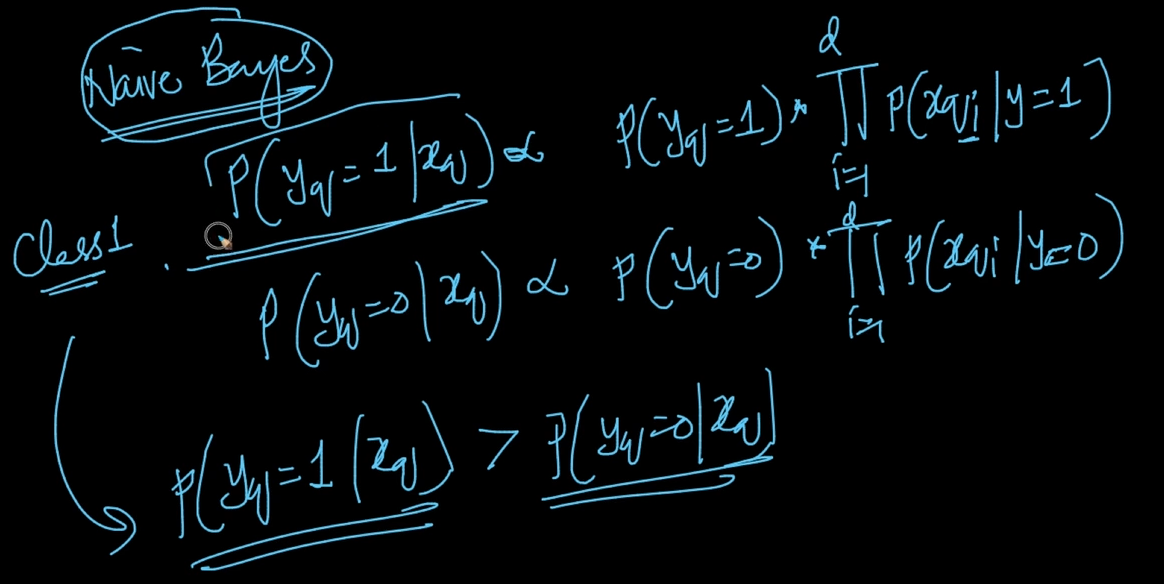 Naive Bayes
P(yq=1|xq) ∝ P(yq=1) * ∏_{i=1}^{d} P(xqi|y=1)
Class1
P(yq=0|xq) ∝ P(yq=0) * ∏_{i=1}^{d} P(xqi|y=0)
P(yq=1|xq) > P(yq=0|xq)